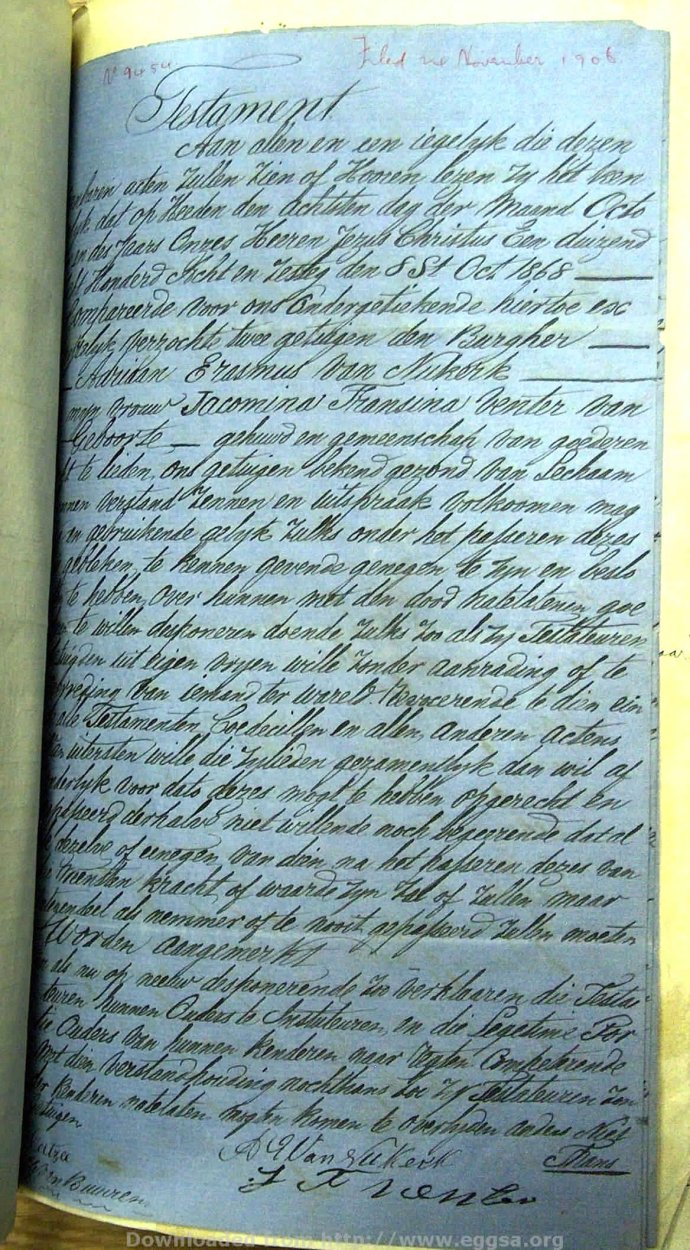 No 9454
Filed 2nd November 1906
Testament
Aan allen en een iegelyk die dezen
acten Zullen Zien of Hooren lezen Zy het ken
dat op Heeden den Achtsten dag der Maand Octo
des Jaars Onzes Heeren Jezus Christus Een duizend
Honderd Acht en Zesteg den 8 St Oct 1868
Compareerde voor ons Ondergetiekende hiertoe ex
verzochte twee getuigen den Burgher
Adriaan Erasmus Van Nikerk
vrouw Jacomina Fransina Venter van
Geboorte gehuwd en gemeenschap van goederen
te lieden, ons getuigen bekend gezond van Lechaam
verstand Zennen en uitspraak volkoomen mag
en gebruikende gelyk Zulks onder het passeren dezes
gebleken, te kennen gevende genegen te Zyn en beslo
te hebben, over hunnen met den dood natelatenen goe
te willen desponeren doende, Zulks Zoo als Zy Testateuren
uit eigen vryen wille Zonder aanrading of te
van iemand ter wareld. Revocerende te dien ein
alle Testamenten Coedecillen en allen anderen actens
uitersten wille die Zylieden gezamentlyk dan wil af
voor dato dezes mogt te hebben opgerecht en
gepasseerd derhalve niet willende noch begeerende dat al
dezelve of eenegen van dien, na het passeren dezes van
kracht of waarde Zyn Zal of Zullen maar
als nemmer of te nooit gepasseerd Zullen moeten
Worden aangemerkt
als nu op nieuw desponerende Zoo verklaaren die Testa
teuren hunnen Ouders te Institueuren, en die Legetime Por
tie Ouders van hunnen kenderen naar Regten Competeerende
met dien verstand houding nochthans Zoo Zy Testateuren Zon
der kenderen natelaten mogten komen te overlyden anders Niet
getuigen
A E Van Nikerk
Thans
J F Venter
van Buuren
Downloaded from http://www.eggsa.org